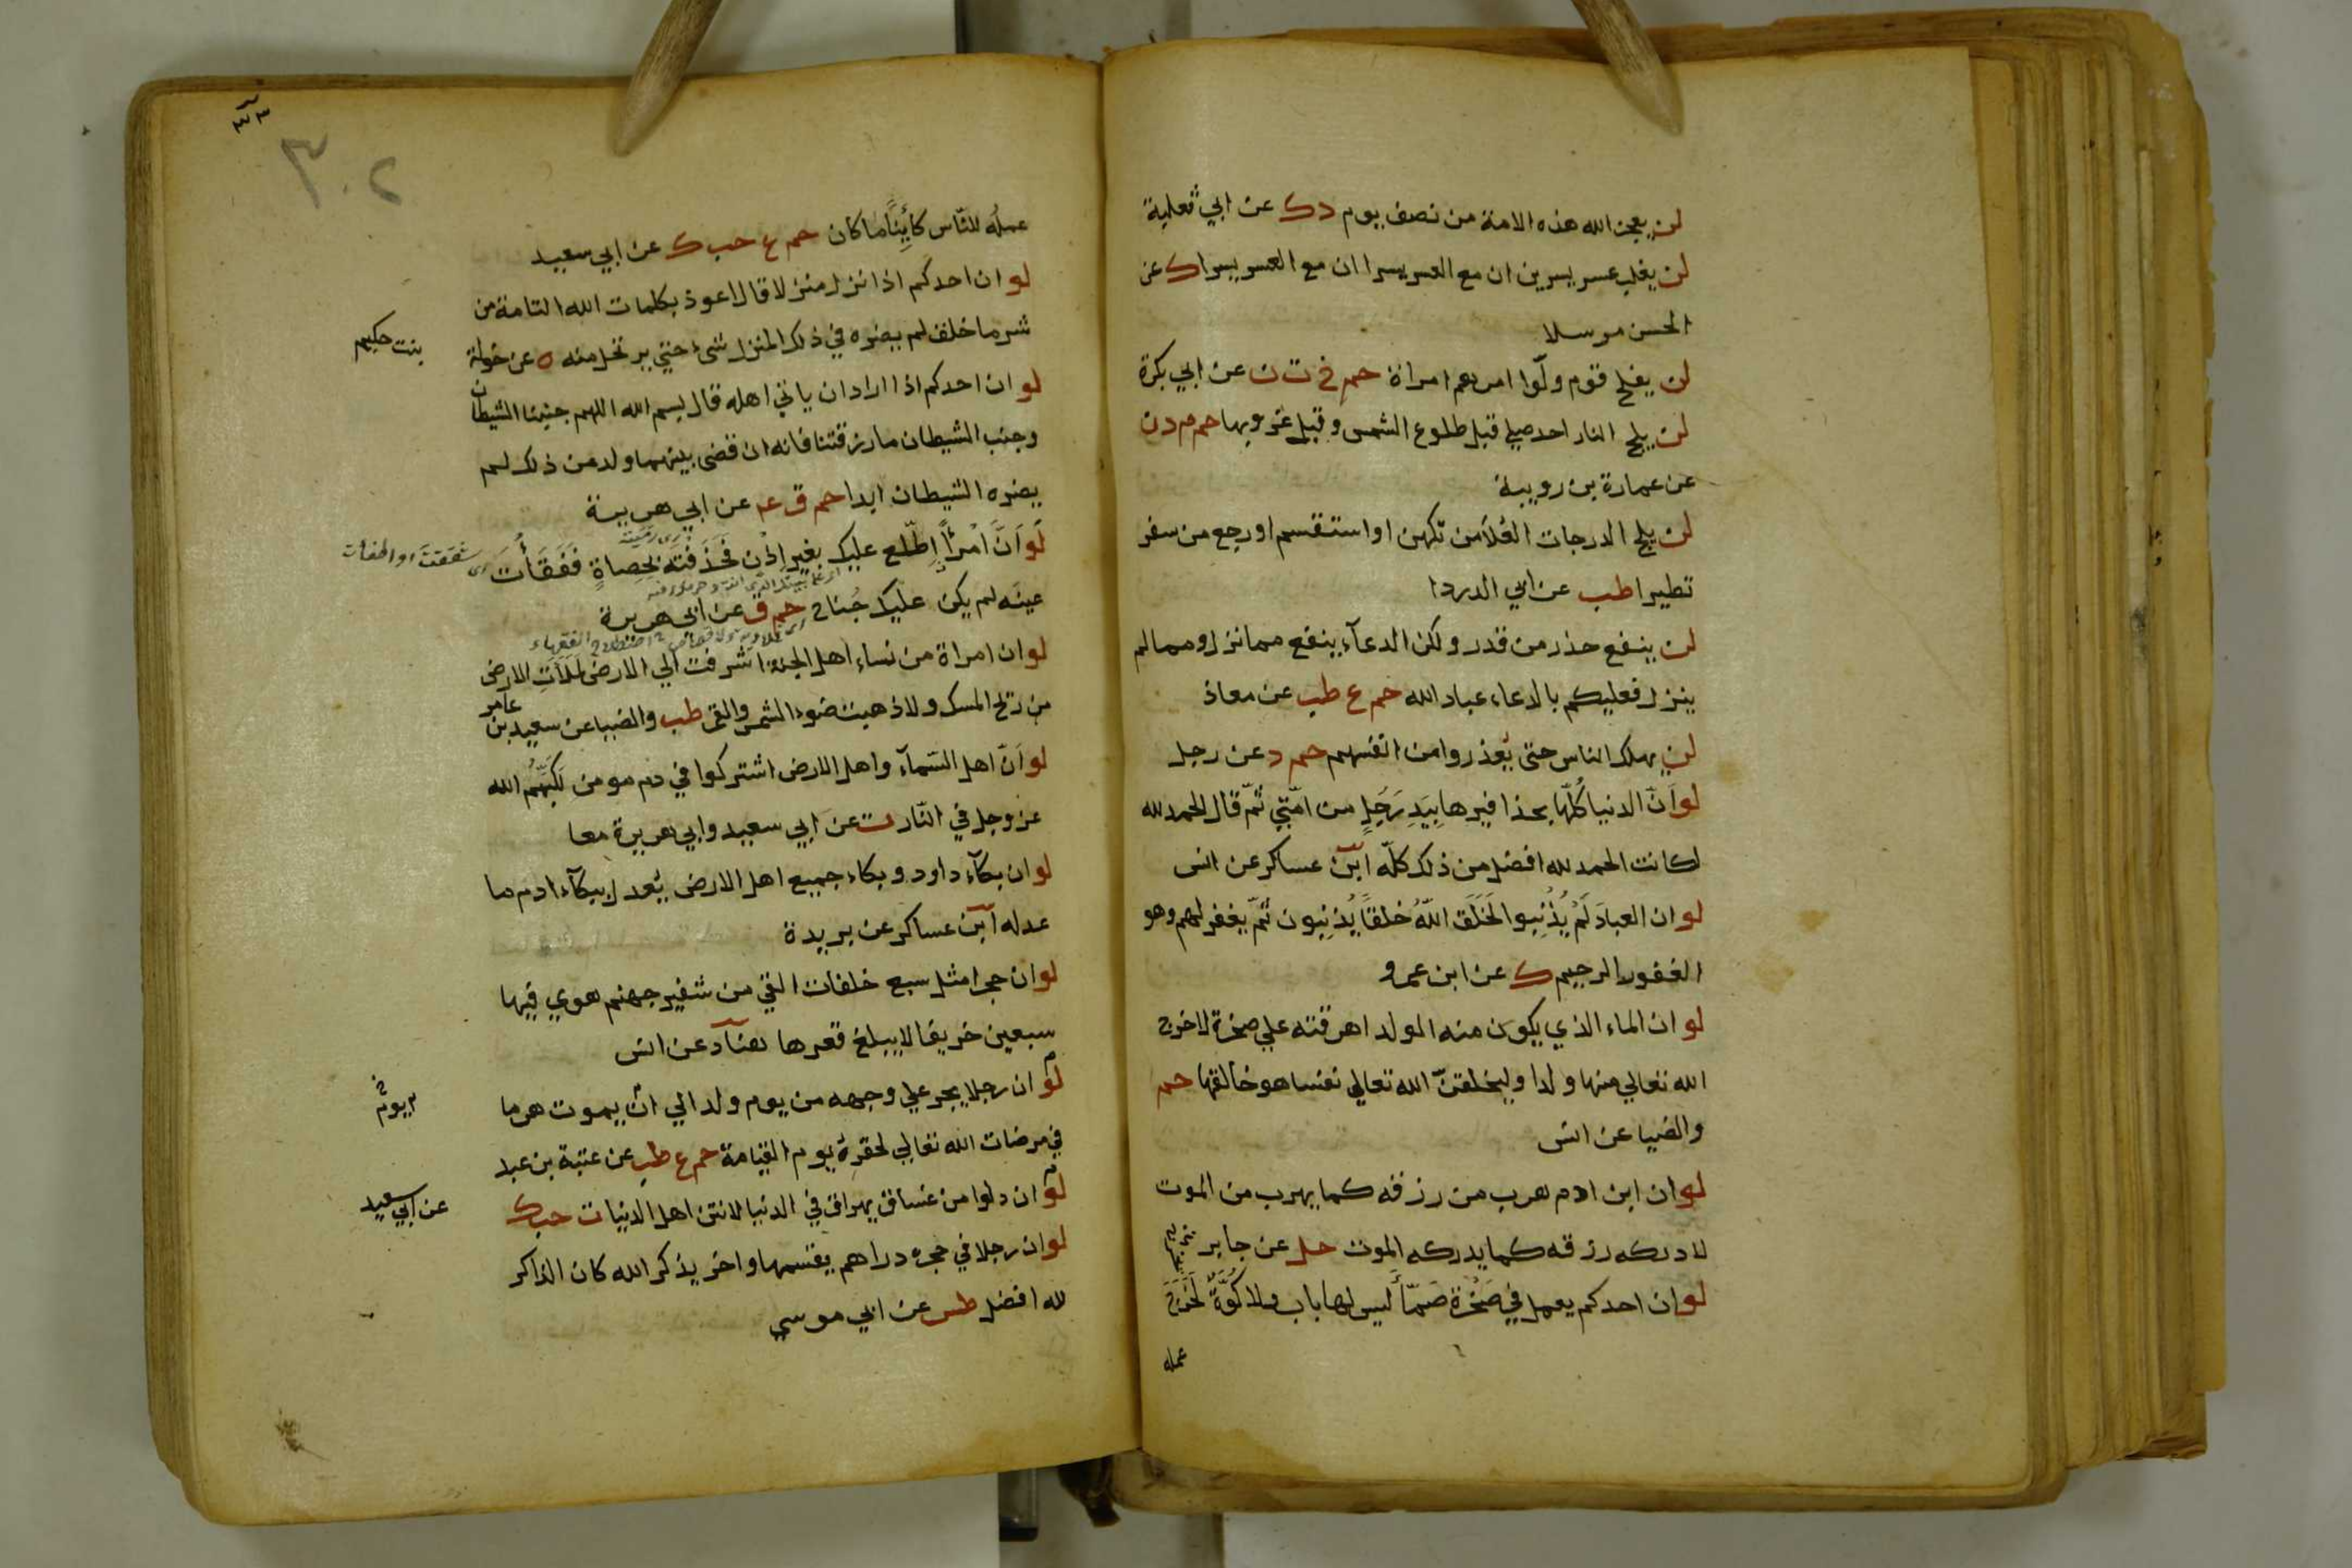 لن يعجز الله هذه الامة من نصف يوم د ك عن ابي ثعلبة
لن يغلب عسر يسرين ان مع العسر يسرا ان مع العسر يسرا ك عن
الحسن مرسلا
لن يفلح قوم ولّوا امرهم امراة حم خ ت ن عن ابي بكرة
لن يلج النار احد صلي قبل طلوع الشمس وقبل غروبها حم م د ن
عن عمارة بن رويبة
لن يلج الدرجات العُلَا من تكهن او استقسم او رجع من سفر
تطيرا طب عن ابي الدردا
لن ينفع حذر من قدر ولكن الدعآء ينفع مما نزل ومما لم
ينزل فعليكم بالدعاء عباد الله حم ع طب عن معاذ
لن يهلك الناس حتى يُعذروا من انفسهم حم د عن رجل
لو اَنَّ الدنيا كُلَّها بحذافيرها بِيَدِ رَجُلٍ من امّتي ثمّ قال الحمد لله
لكانت الحمد لله افضل من ذلك كلّه ابن عساكر عن انس
لو ان العبادَ لَمْ يُذْنِبوا لَخَلَقَ اللّهُ خلقاً يُذنِبون ثمّ يغفر لهم وهو
الغفور الرحيم ك عن ابن عمرو
لو ان الماء الذي يكون منه الولد اهرقته علي صخرة لاخرج
الله تعالي منها ولدا وليخلقنّ الله تعالي نفسا هو خالقها حم
والضيا عن انس
لو ان ابن ادم هرب من رزقه كما يهرب من الموت
لادركه رزقه كما يدركه الموت حل عن جابر
لو ان احدكم يعمل في صَخْرة صَمّاً ليس لها باب ولا كُوَّةٌ لَخَرَجَ
عمله
٣٠٢
عملُه للنّاس كَائِناً ما كان حم ع حب ك عن ابي سعيد
لو ان احدكم اذا نزل منزلا قال اعوذ بكلمات الله التامة من
شر ما خلق لم يضره في ذلك المنزل شىء حتي يرتحل منه ه عن خولة
بنت حكيم
لو ان احدكم اذا اراد ان ياتي اهله قال بسم الله اللهم جنبنا الشيطان
وجنب الشيطان ما رزقتنا فانه ان قضى بينهما ولد من ذلك لم
يضره الشيطان ابدا حم ق عه عن ابي هريرة
لَو اَنَّ اَمْرَأً اِطّلع عليك بغير اِذْن فَحَذَفتَه بِحِصاةٍ فَفَقَأْتَ
اى شققت او اطفات
عينَه لم يكن عليك جُناح حم ق عن ابي هريرة
لو ان امراة من نساء اهل الجنة اشرفت الي الارض لملأَتِ الارض
من ريح المسك ولاذهبت ضوء الشمس والقمر طب والضيا عن سعيد بن
عامر
لو اَنّ اهل السّمآء واهل الارض اشتركوا في دم مومن لَكَبَّهُمُ الله
عز وجل في النّار ت عن ابي سعيد وابي هريرة معا
لو ان بكآء داود وبكاء جميع اهل الارض يُعدل ببكآء ادم ما
عدله ابن عساكر عن بريدة
لو ان حجرا مثل سبع خلفات القي من شفير جهنم هوي فيها
سبعين خريفا لا يبلغ قعرها هناد عن انس
لو ان رجلا يجر علي وجهه من يوم ولد الي ان يموت هرما
في مرضات الله تعالي لحقره يوم القيامة حم ع طب عن عتبة بن عبد
لو ان دلوا من غساق يهراق في الدنيا لانتن اهل الدنيا ت حب ك
عن ابي سعيد
لو ان رجلا في حجره دراهم يقسمها واخر يذكر الله كان الذاكر
لله افضل طس عن ابي موسي